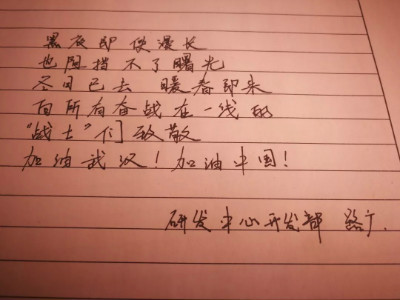 黑夜即使漫长
也阻挡不了曙光
冬日已去 暖春即来
向所有奋战在一线的
“战士”们致敬
加油武汉！加油中国！
研发中心开发部 路广